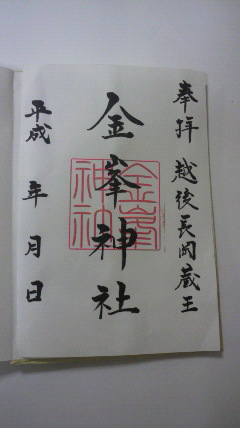 奉拝 越後長岡蔵王
金峯神社
金峯神社
平成 年 月 日